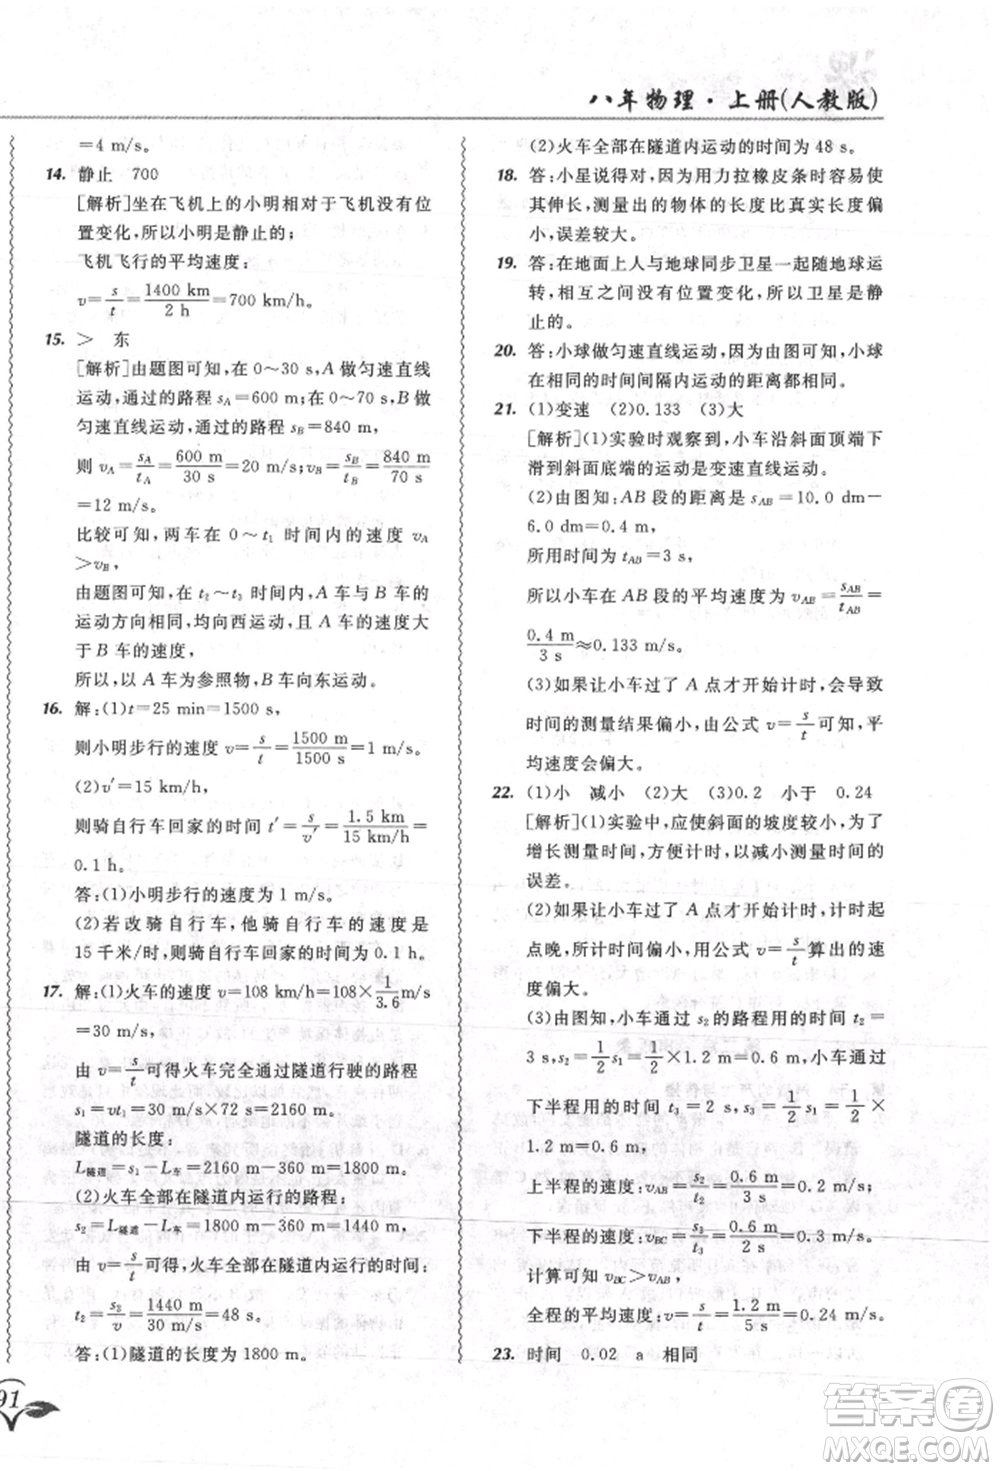 八年物理·上册(人教版)
=4 m/s。
14. 静止 700
[解析]坐在飞机上的小明相对于飞机没有位
置变化,所以小明是静止的;
飞机飞行的平均速度:
v=s/t=1400 km/2 h=700 km/h。
15. > 东
[解析]由题图可知,在 0~30 s,A 匀速直线
运动,通过的路程 sA=600 m;在 0~70 s,B 做
匀速直线运动,通过的路程 sB=840 m,
则 vA=sA/tA=600 m/30 s=20 m/s;vB=sB/tB=840 m/70 s
=12 m/s。
比较可知,两车在 0~t1 时间内的速度 vA
>vB,
由题图可知,在 t2~t3 时间内,A 车与 B 车的
运动方向相同,均向西运动,且 A 车的速度大
于 B 车的速度,
所以,以 A 车为参照物,B 车向东运动。
16. 解:(1)t=25 min=1500 s,
则小明步行的速度 v=s/t=1500 m/1500 s=1 m/s,
(2)v′=15 km/h,
则骑自行车回家的时间 t′=s/v′=1.5 km/15 km/h=
0.1 h。
答:(1)小明步行的速度为 1 m/s;
(2)若改骑自行车,他骑自行车的速度是
15 千米/时,则骑自行车回家的时间为 0.1 h。
17. 解:(1)火车的速度 v=108 km/h=108×1/3.6 m/s
=30 m/s,
由 v=s/t 可得,火车完全通过隧道行驶的路程
s1=vt1=30 m/s×72 s=2160 m。
隧道的长度:
L隧道=s1-L车=2160 m-360 m=1800 m。
(2)火车全部在隧道内运行的路程:
s2=L隧道-L车=1800 m-360 m=1440 m,
由 v=s/t 可得,火车全部在隧道内运行的时间:
t2=s2/v=1440 m/30 m/s=48 s。
答:(1)隧道的长度为 1800 m。
(2)火车全部在隧道内运动的时间为 48 s。
18. 答:小星说得对,因为用力拉橡皮条时容易使
其伸长,测量出的物体的长度比真实长度偏
小,误差较大。
19. 答:在地面上人与地球同步卫星一起随地球运
转,相互之间没有位置变化,所以卫星是静
止的。
20. 答:小球做匀速直线运动,因为由图可知,小球
在相同的时间间隔内运动的距离都相同。
21. (1)变速 (2)0.133 (3)大
[解析](1)实验时观察到,小车沿斜面顶端下
滑到斜面底端的运动是变速直线运动。
(2)由图知:AB 段的距离是 sAB=10.0 dm-
6.0 dm=0.4 m,
所用时间为 tAB=3 s,
所以小车在 AB 段的平均速度为 vAB=sAB/tAB=
0.4 m/3 s≈0.133 m/s。
(3)如果让小车过了 A 点才开始计时,会导致
时间的测量结果偏小,由公式 v=s/t 可知,平
均速度会偏大。
22. (1)小 减小 (2)大 (3)0.2 小于 0.24
[解析](1)实验中,应使斜面的坡度较小,为了
增长测量时间,以减小测量时间而造成的
误差。
(2)如果让小车过了 A 点才开始计时,计时起
点晚,所计时间偏小,用公式 v=s/t 算出的速
度偏大。
(3)由图知,小车通过 s2 的路程用的时间 t2=
3 s,s2=1/2 s1=1/2×1.2 m=0.6 m,小车通过
下半程用的时间 t3=2 s,s3=1/2 s1=1/2×
1.2 m=0.6 m,
上半程的速度:vAB=s2/t2=0.6 m/3 s=0.2 m/s,
下半程的速度:vBC=s3/t3=0.6 m/2 s=0.3 m/s。
计算可知 vBC>vAB,
全程的平均速度:v=s/t=1.2 m/5 s=0.24 m/s。
23. 时间 0.02 a 相同
91
答案圈
MXQE.COM